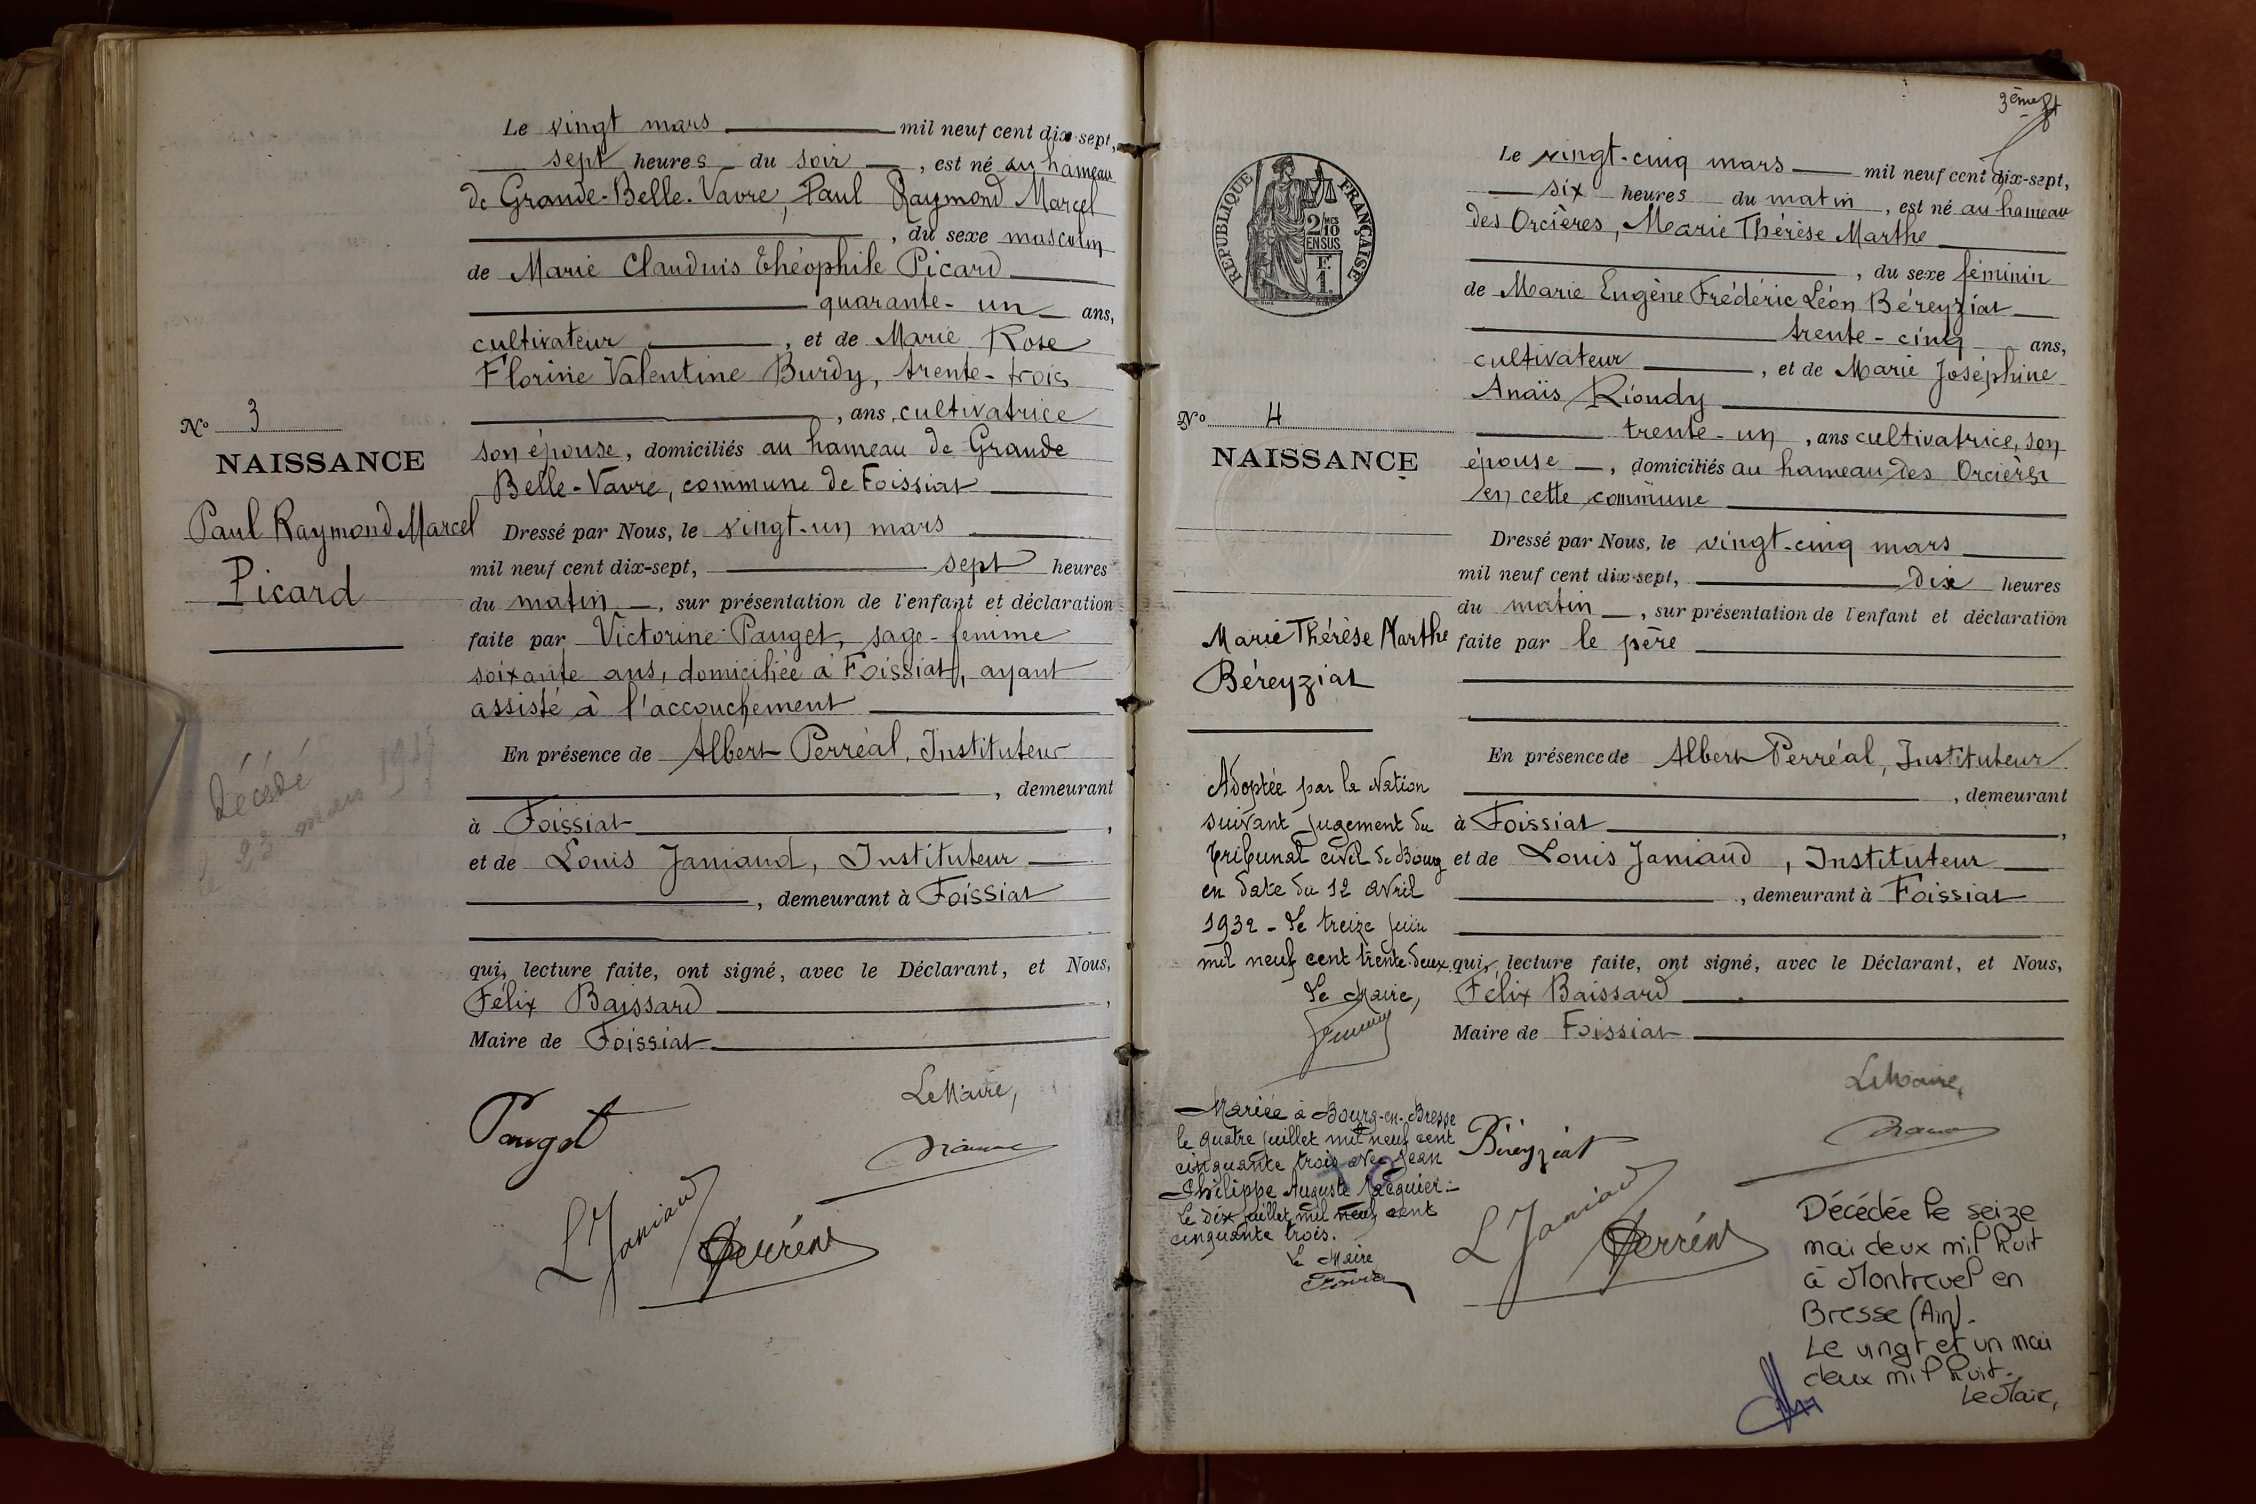 Le vingt mars mil neuf cent dix-sept,
sept heures du soir, est né au hameau
de Grande-Belle-Vavre, Paul Raymond Marcel
, du sexe masculin
de Marie Claudius Théophile Picard
quarante-un ans,
cultivateur, et de Marie Rose
Florine Valentine Burdy, trente-trois
, ans, cultivatrice
son épouse, domiciliés au hameau de Grande
Belle-Vavre, commune de Foissiat
Nº 3
NAISSANCE
Paul Raymond Marcel
Picard
Dressé par Nous, le vingt-un mars
mil neuf cent dix-sept, sept heures
du matin, sur présentation de l'enfant et déclaration
faite par Victorine Pauget, sage-femme
soixante ans, domiciliée à Foissiat, ayant
assisté à l'accouchement
En présence de Albert Perréal, Instituteur
, demeurant
à Foissiat,
et de Louis Janiaud, Instituteur
, demeurant à Foissiat
qui, lecture faite, ont signé, avec le Déclarant, et Nous,
Félix Baissard,
Maire de Foissiat
Décédé
le 23 mars
Le Maire,
Pauget
L Janiaud
Perréal
3ème ft
RÉPUBLIQUE FRANÇAISE
2/10 MES
EN SUS
F.
1.
Le vingt-cinq mars mil neuf cent dix-sept,
six heures du matin, est né au hameau
des Orcières, Marie Thérèse Marthe
, du sexe féminin
de Marie Eugène Frédéric Léon Béreyziat
trente-cinq ans,
cultivateur, et de Marie Joséphine
Anaïs Rioudy
trente-un, ans cultivatrice, son
épouse, domiciliés au hameau des Orcières
en cette commune
Nº 4
NAISSANCE
Marie Thérèse Marthe
Béreyziat
Dressé par Nous, le vingt-cinq mars
mil neuf cent dix-sept, dix heures
du matin, sur présentation de l'enfant et déclaration
faite par le père
En présence de Albert Perréal, Instituteur
, demeurant
à Foissiat,
et de Louis Janiaud, Instituteur
, demeurant à Foissiat
qui, lecture faite, ont signé, avec le Déclarant, et Nous,
Félix Baissard
Maire de Foissiat
Adoptée par la Nation
suivant jugement du
tribunal civil de Bourg
en date du 12 avril
1932 - Le treize juin
mil neuf cent trente-deux.
Le Maire,
Mariée à Bourg-en-Bresse
le quatre juillet mil neuf cent
cinquante trois avec Jean
Philippe Auguste Jacquier.-
Le dix juillet mil neuf cent
cinquante trois.
Le Maire
Le Maire,
Béreyziat
L Janiaud
Perréal
Décédée le seize
mai deux mil huit
à Montrevel en
Bresse (Ain).
Le vingt et un mai
deux mil huit.
Le Maire,